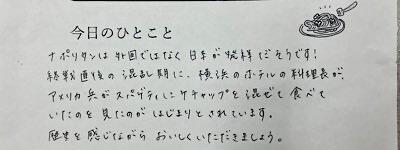 今日のひとこと
ナポリタンは外国ではなく日本が発祥だそうです!
終戦直後の混乱期に、横浜のホテルの料理長が、
アメリカ兵がスパゲティにケチャップを混ぜて食べて
いたのを見たのがはじまりとされています。
歴史を感じながらおいしくいただきましょう。